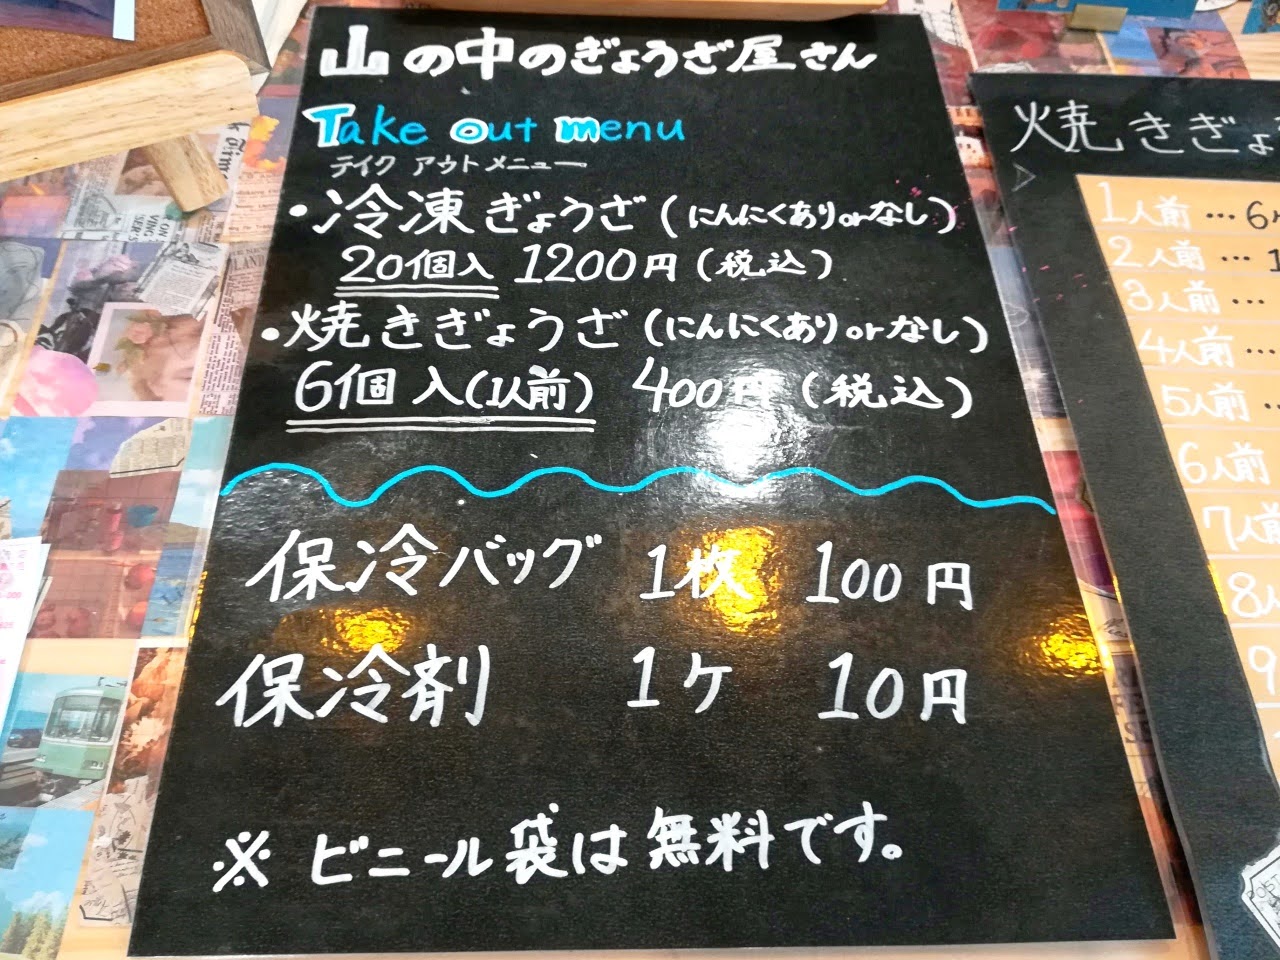 山の中のぎょうざ屋さん
Take out menu
テイク アウトメニュー
・冷凍ぎょうざ(にんにくありorなし)
20個入 1200円(税込)
・焼きぎょうざ(にんにくありorなし)
6個入(1人前) 400円(税込)
保冷バッグ 1枚 100円
保冷剤 1ケ 10円
※ビニール袋は無料です。
焼きぎょ
1人前…6
2人前…1
3人前…
4人前…
5人前…
6人前
7人前
8人
9